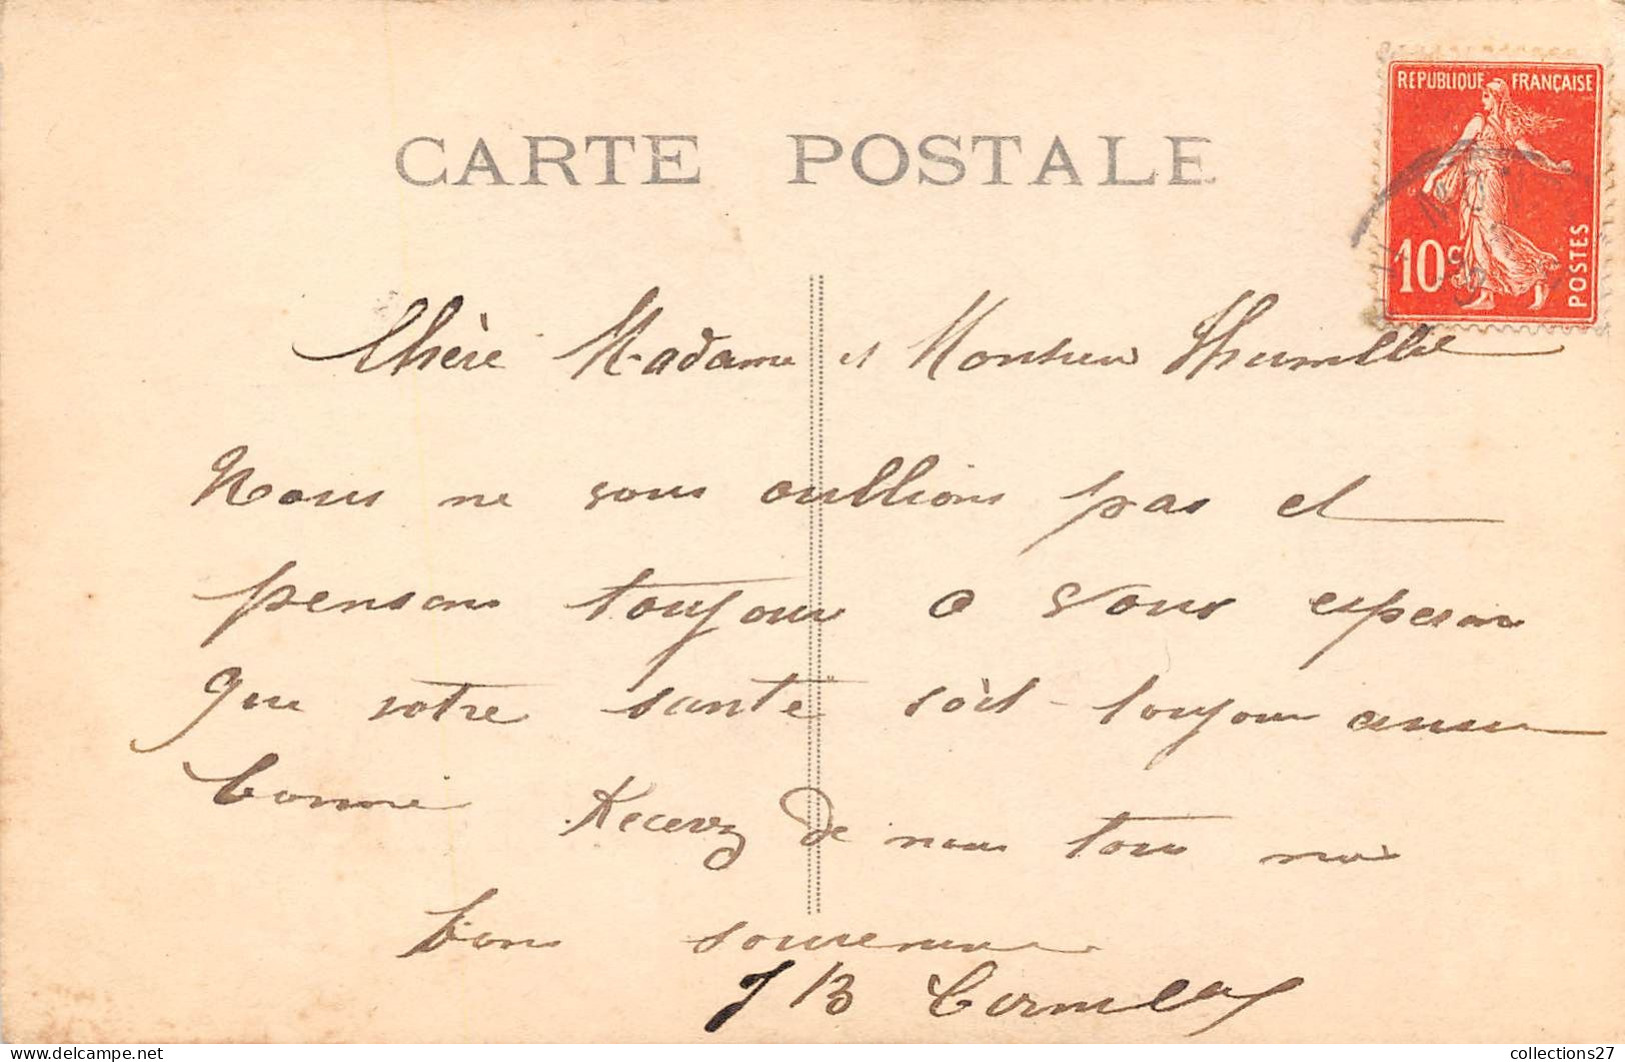 CARTE POSTALE
RÉPUBLIQUE FRANÇAISE
10c
POSTES
Chère Madame et Monsieur
Nous ne vous oullions pas et
pensons toujours a vous esperon
que votre santé soit toujour aussi
bonne
Recevez de nous tous nos
bons souvenir
J B
collections27